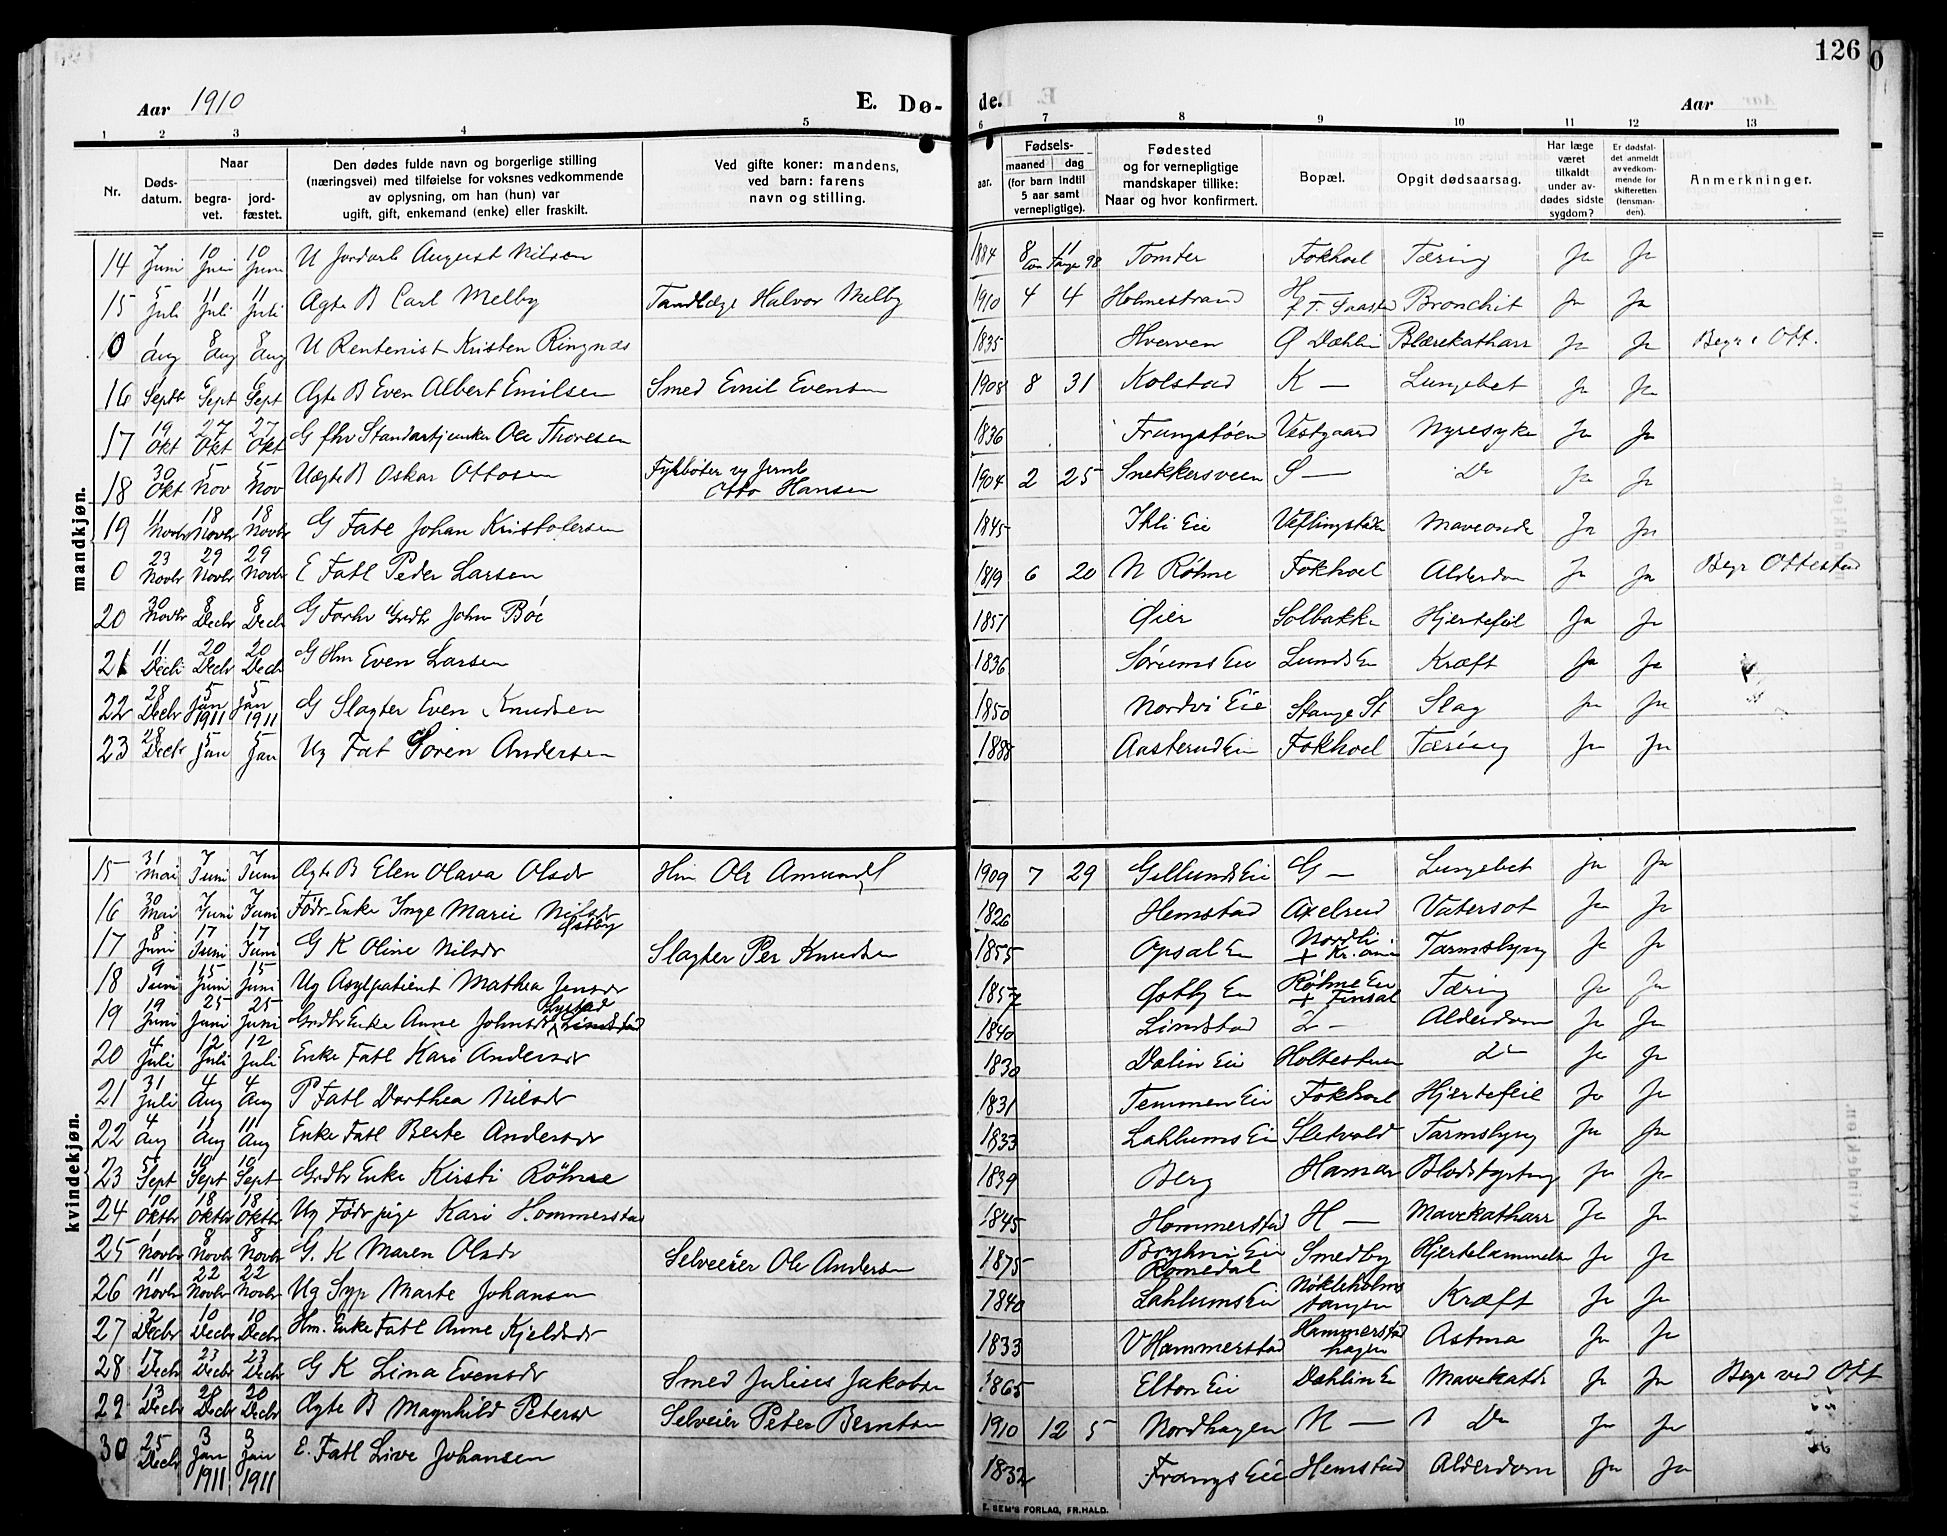 126
Aar 1910 E. Dø- de. Aar
1 2 3 4 5 6 7 8 9 10 11 12 13
Nr. Døds-datum. Naar begra-vet. jord-fæstet. Den dødes fulde navn og borgerlige stilling (næringsvei) med tilføielse for voksnes vedkommende av oplysning, om han (hun) var ugift, gift, enkemand (enke) eller fraskilt. Ved gifte koner: mandens, ved barn: farens navn og stilling. aar. Fødsels- maaned dag (for barn indtil 5 aar samt vernepligtige). Fødested og for vernepligtige mandskaper tillike: Naar og hvor konfirmert. Bopæl. Opgit dødsaarsag. Har læge været tilkaldt under av-dødes sidste sygdom? Er dødsfal-det anmeldt av vedkom-mende for skifteretten (lensman-den). Anmerkninger.
mandkjøn.
14 7 Juni 10 Juni 10 Juni U Jordarb August Nilsen 1884 8 11 Tomter Fokhoel Tæring Ja Ja
15 5 Juli 11 Juli 11 Juli Ægte B Carl Melby Tandlæge Halvor Melby 1910 4 4 Holmestrand Bronchit Ja Ja
0 1 Aug 8 Aug 8 Aug U Rentenist Kristen Ringnæs 1835 Hverven Ø Dæhlin Blærekatharr Ja Ja Begr i Ott.
16 Septbr 6 Sept 6 Sept Ægte B Even Albert Emilsen Smed Emil Evensen 1908 8 31 Kolstad K — Lungebet Ja Ja
17 19 Okt 27 Okt 27 Okt G fhv Standartjunker Ole Thoresen 1836 Frangstøen Vestgaard Nyresyke Ja Ja
18 30 Okt 5 Nov 5 Nov Uægte B Oskar Ottosen Fyrbøter vg Jernb Otto Hansen 1904 2 25 Snekkersveen S — Do Ja Ja
19 11 Novbr 18 Novbr 18 Novbr G Fatl Johan Kristofersen 1845 Ihli Eie Veflingstaden Maveonde Ja Ja
0 23 Novbr 29 Novbr 29 Novbr E Fatl Peder Larsen 1819 6 20 N Röhne Fokhoel Alderdom Ja Ja Begr Ottestad
20 30 Novbr 8 Decbr 8 Decb G Forhv Grdbr Johan Böe 1857 Øier Solbakken Hjertefeil Ja Ja
21 11 Decb 20 Decbr 20 Decbr G Hm Even Larsen 1836 Sørums Eie Lunds Eie Kræft Ja Ja
22 28 Decbr 5 Jan 1911 5 Jan 1911 G Slagter Even Knudsen 1850 Nordvi Eie Stange St Slag Ja Ja
23 28 Decbr 5 Jan 5 Jan Ug Fat Søren Andersen 1888 Aasterud Eie Fokhoel Tæring Ja Ja
kvindekjøn.
15 31 Mai 7 Juni 7 Juni Ægte B Elen Olava Olsdr Hm Ole Amunds 1909 7 29 Gillunds Eie G — Lungebet Ja Ja
16 30 Mai 7 Juni 7 Juni Födr-Enke Inge Marie Nilsdr Østby 1826 Hemstad Axelrud Vatersot Ja Ja
17 8 Juni 17 Juni 17 Juni G K Oline Nilsdr Slagter Per Knudsen 1855 Opsal Eie Nordli + Kr.ania Tarmslyng Ja Ja
18 9 Juni 15 Juni 15 Juni Ug Asylpatient Mathea Jensdr 1857 Østby Eie Röhne Eie + Finsal Tæring Ja Ja
19 19 Juni 25 Juni 25 Juni Grdbr Enke Anne Johnsdr Lindstad 1840 Lindstad L — Alderdom Ja Ja
20 4 Juli 12 Juli 12 Juli Enke Fatl Kari Andersdr 1830 Dælin Eie Holtestuen Do Ja Ja
21 31 Juli 4 Aug 4 Aug P Fatl Dorthea Nilsdr 1831 Temmen Eie Fokhoel Hjertefeil Ja Ja
22 4 Aug 11 Aug 11 Aug Enke Fatl Berte Andersdr 1833 Lahlums Eie Sletvold Tarmslyng Ja Ja
23 5 Sept 10 Sept 10 Sept Grdbr Enke Kirsti Röhne 1839 Berg Hamar Blodstyrtning Ja Ja
24 10 Oktbr 18 Oktbr 18 Oktbr Ug Födrpige Kari Hommerstad 1845 Hommerstad H — Mavekatharr Ja Ja
25 1 Novbr 8 Novbr 8 Novbr G. K Maren Olsdr Selveier Ole Andersen 1875 Bryhni Eie Romedal Smedby Hjertelammelse Ja Ja
26 11 Novbr 22 Novbr 22 Novbr Ug Syp Marte Johansen 1840 Lahlums Eie Nökleholmstangen Kræft Ja Ja
27 2 Decbr 10 Decbr 10 Decbr Hm. Enke Fatl Anne Kjeldsdr 1833 V Hammerstad Hammerstad hagen Astma Ja Ja
28 17 Decbr 23 Decbr 23 Decb G K Lina Evensdr Smed Julius Jakobsen 1865 Elton Eie Dæhlin Eie Mavekath. Ja Ja Begr ved Ott
29 13 Decbr 20 Decbr 20 Decbr Ægte B Magnhild Petersd Selveier Peter Berntsen 1910 12 5 Nordhagen N — Do Ja Ja
30 25 Decbr 3 Jan 1911 3 Jan 1911 E. Fatl Live Johansen 1832 Frangs Eie Hemstad Alderdom Ja Ja
E. SEM'S FORLAG, FR.HALD.